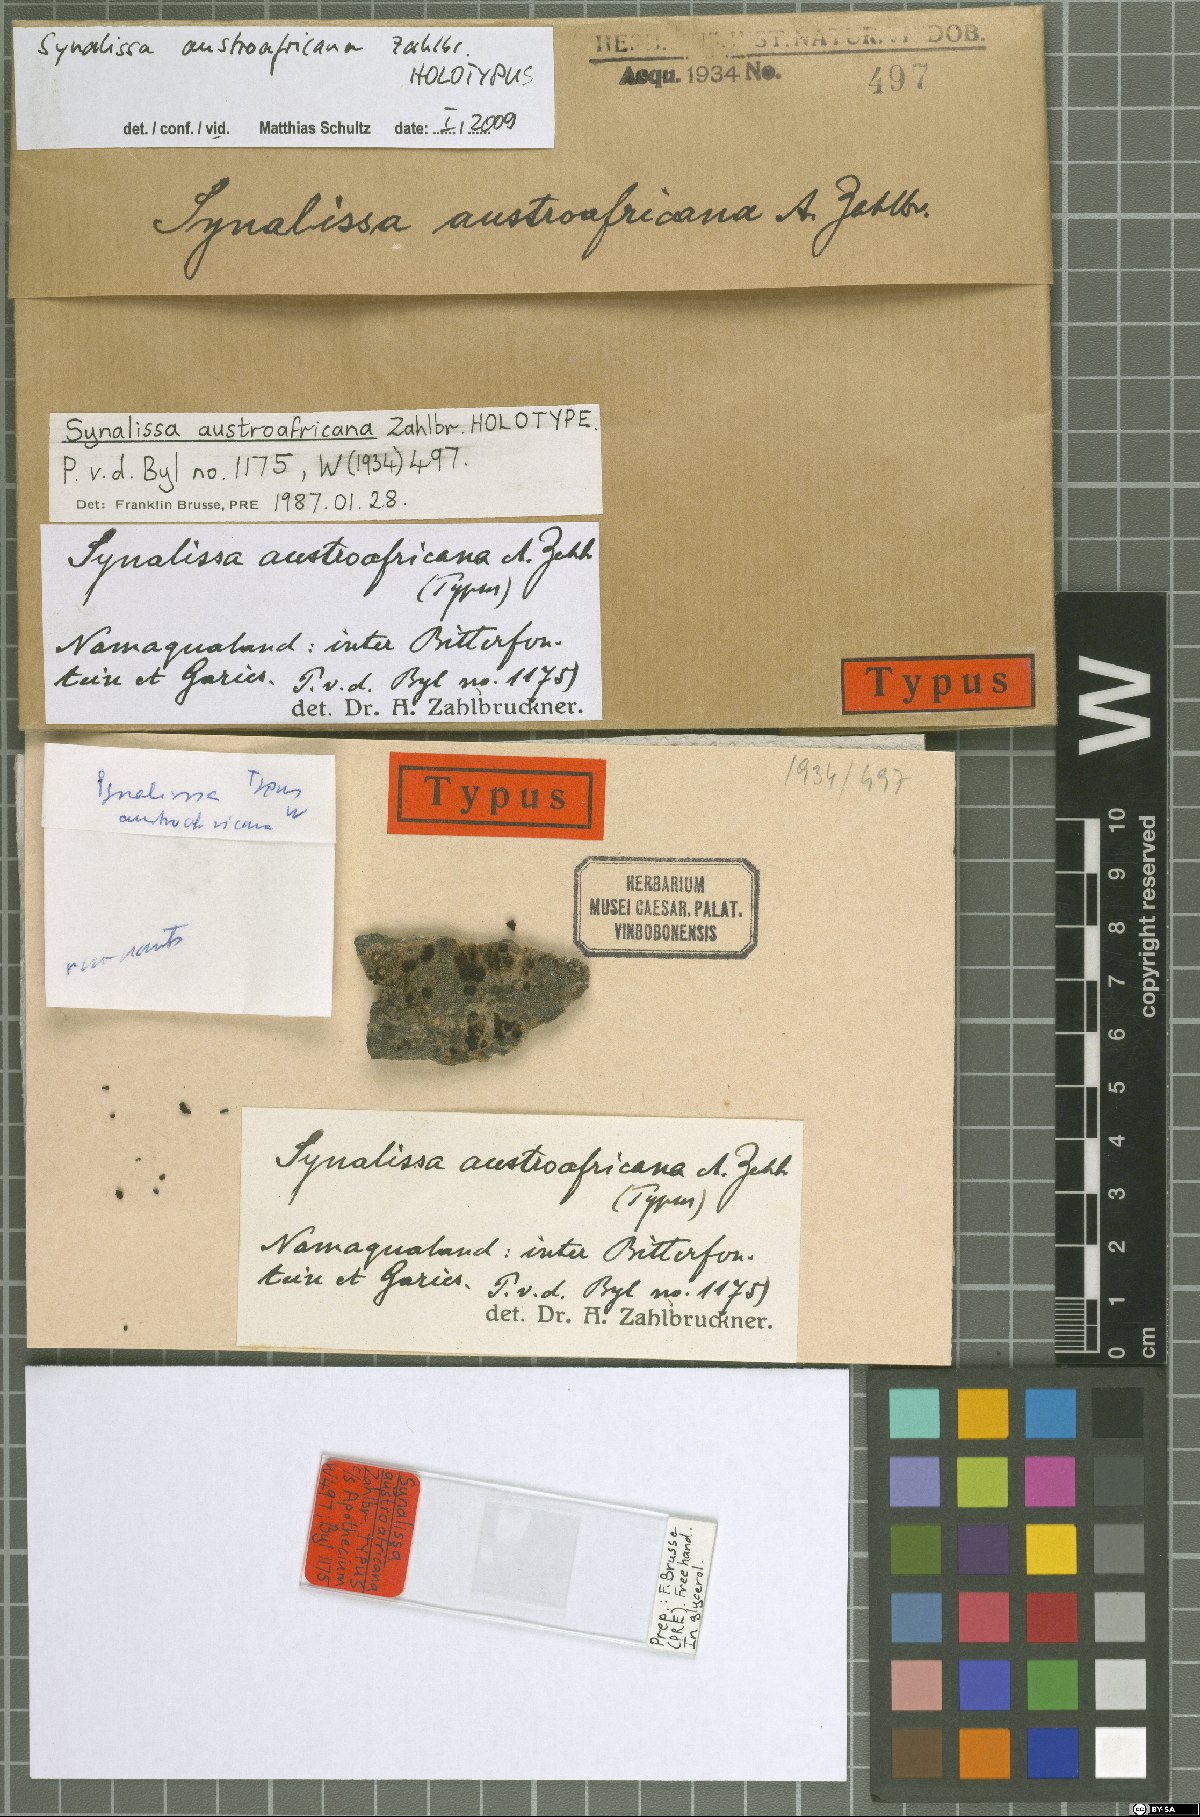 Synalissa austroafricana Zahlbr.
HOLOTYPUS
det. / conf. / vid. Matthias Schultz date: I, 2009
HERB. ST. NATUR. VINDOB.
Acqu. 1934 No. 497
Synalissa austroafricana A. Zahlbr.
Synalissa austroafricana Zahlbr. HOLOTYPE.
P. v. d. Byl no. 1175, W (1934) 497.
Det: Franklin Brusse, PRE 1987.01.28.
Synalissa austroafricana A. Zahlb
(Typus)
Namaqualand: inter Bitterfon-
tein et Garies. P. v. d. Byl no. 1175)
det. Dr. A. Zahlbruckner.
Typus
Synalissa Typus
austroafricana W
Typus
1934/497
HERBARIUM
MUSEI CAESAR. PALAT.
VINDOBONENSIS
Synalissa austroafricana A. Zahlb
(Typus)
Namaqualand: inter Bitterfon-
tein et Garies. P. v. d. Byl no. 1175)
det. Dr. A. Zahlbruckner.
Synalissa
austroafricana
Zahlbr. TYPUS
E/S Apothecium
W497. Byl 1175
Prep.: F. Brusse
(PRE). Free hand.
In glycerol.
W
10
9
8
7
6
5
4
3
2
1
0
cm
copyright reserved
cc BY-SA